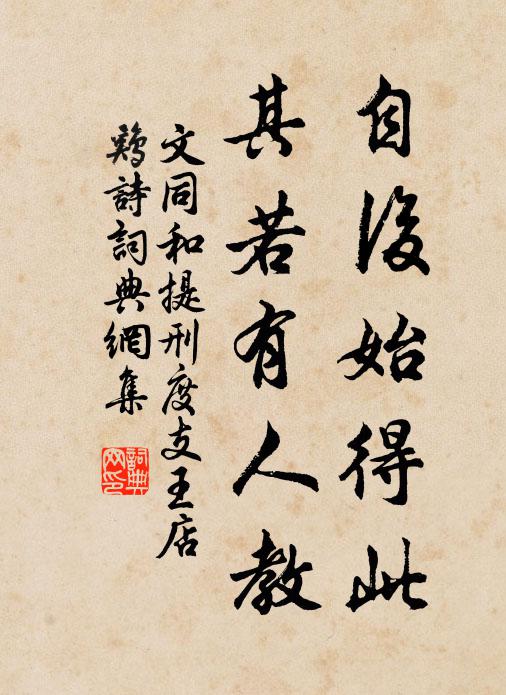 自後始得此
其若有人教
文同和提刑度支王店
鷄詩詞典網集
詞典網印